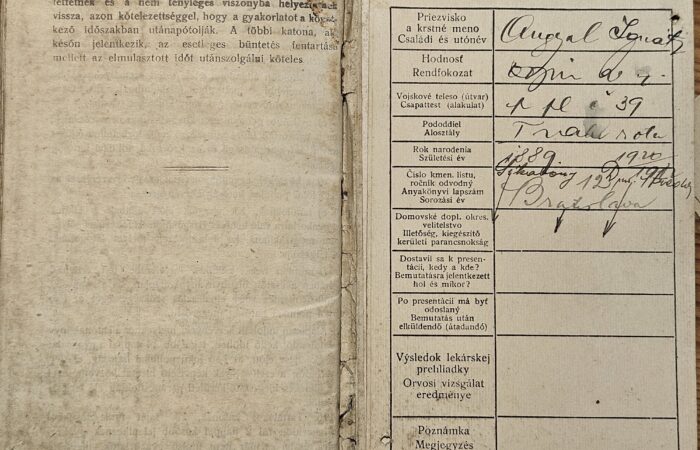 tettetnek és a nem tényleges viszonyba helyeztetnek
vissza, azon kötelezettséggel, hogy a gyakorlatot a
kező időszakban utánapótolják. A többi katona, ak
későn jelentkezik, az esetleges büntetés fentartása
mellett az elmulasztott időt utánszolgálni köteles
Priezvisko
a krstné meno
Családi és utónév
Angyal Ignátz
Hodnosť
Rendfokozat
Vojskové teleso (útvar)
Csapattest (alakulat)
39
Pododdiel
Alosztály
Rok narodenia
Születési év
1889 1920
Číslo kmen. listu,
ročník odvodný
Anyakönyvi lapszám
Sorozási év
Bratislava
Domovské dopl. okres.
velitelstvo
Illetőség, kiegészítő
kerületi parancsnokság
Dostavil sa k presen-
tácii, kedy a kde?
Bemutatásra jelentkezett
hol és mikor?
Po presentácii má byť
odoslaný
Bemutatás után
elküldendő (átadandó)
Výsledok lekárskej
prehliadky
Orvosi vizsgálat
eredménye
Poznámka
Megjegyzés